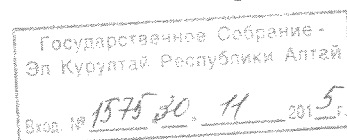 Государственное Собрание -
Эл Курултай Республики Алтай
Вход. № 1575 30. 11 2015г.